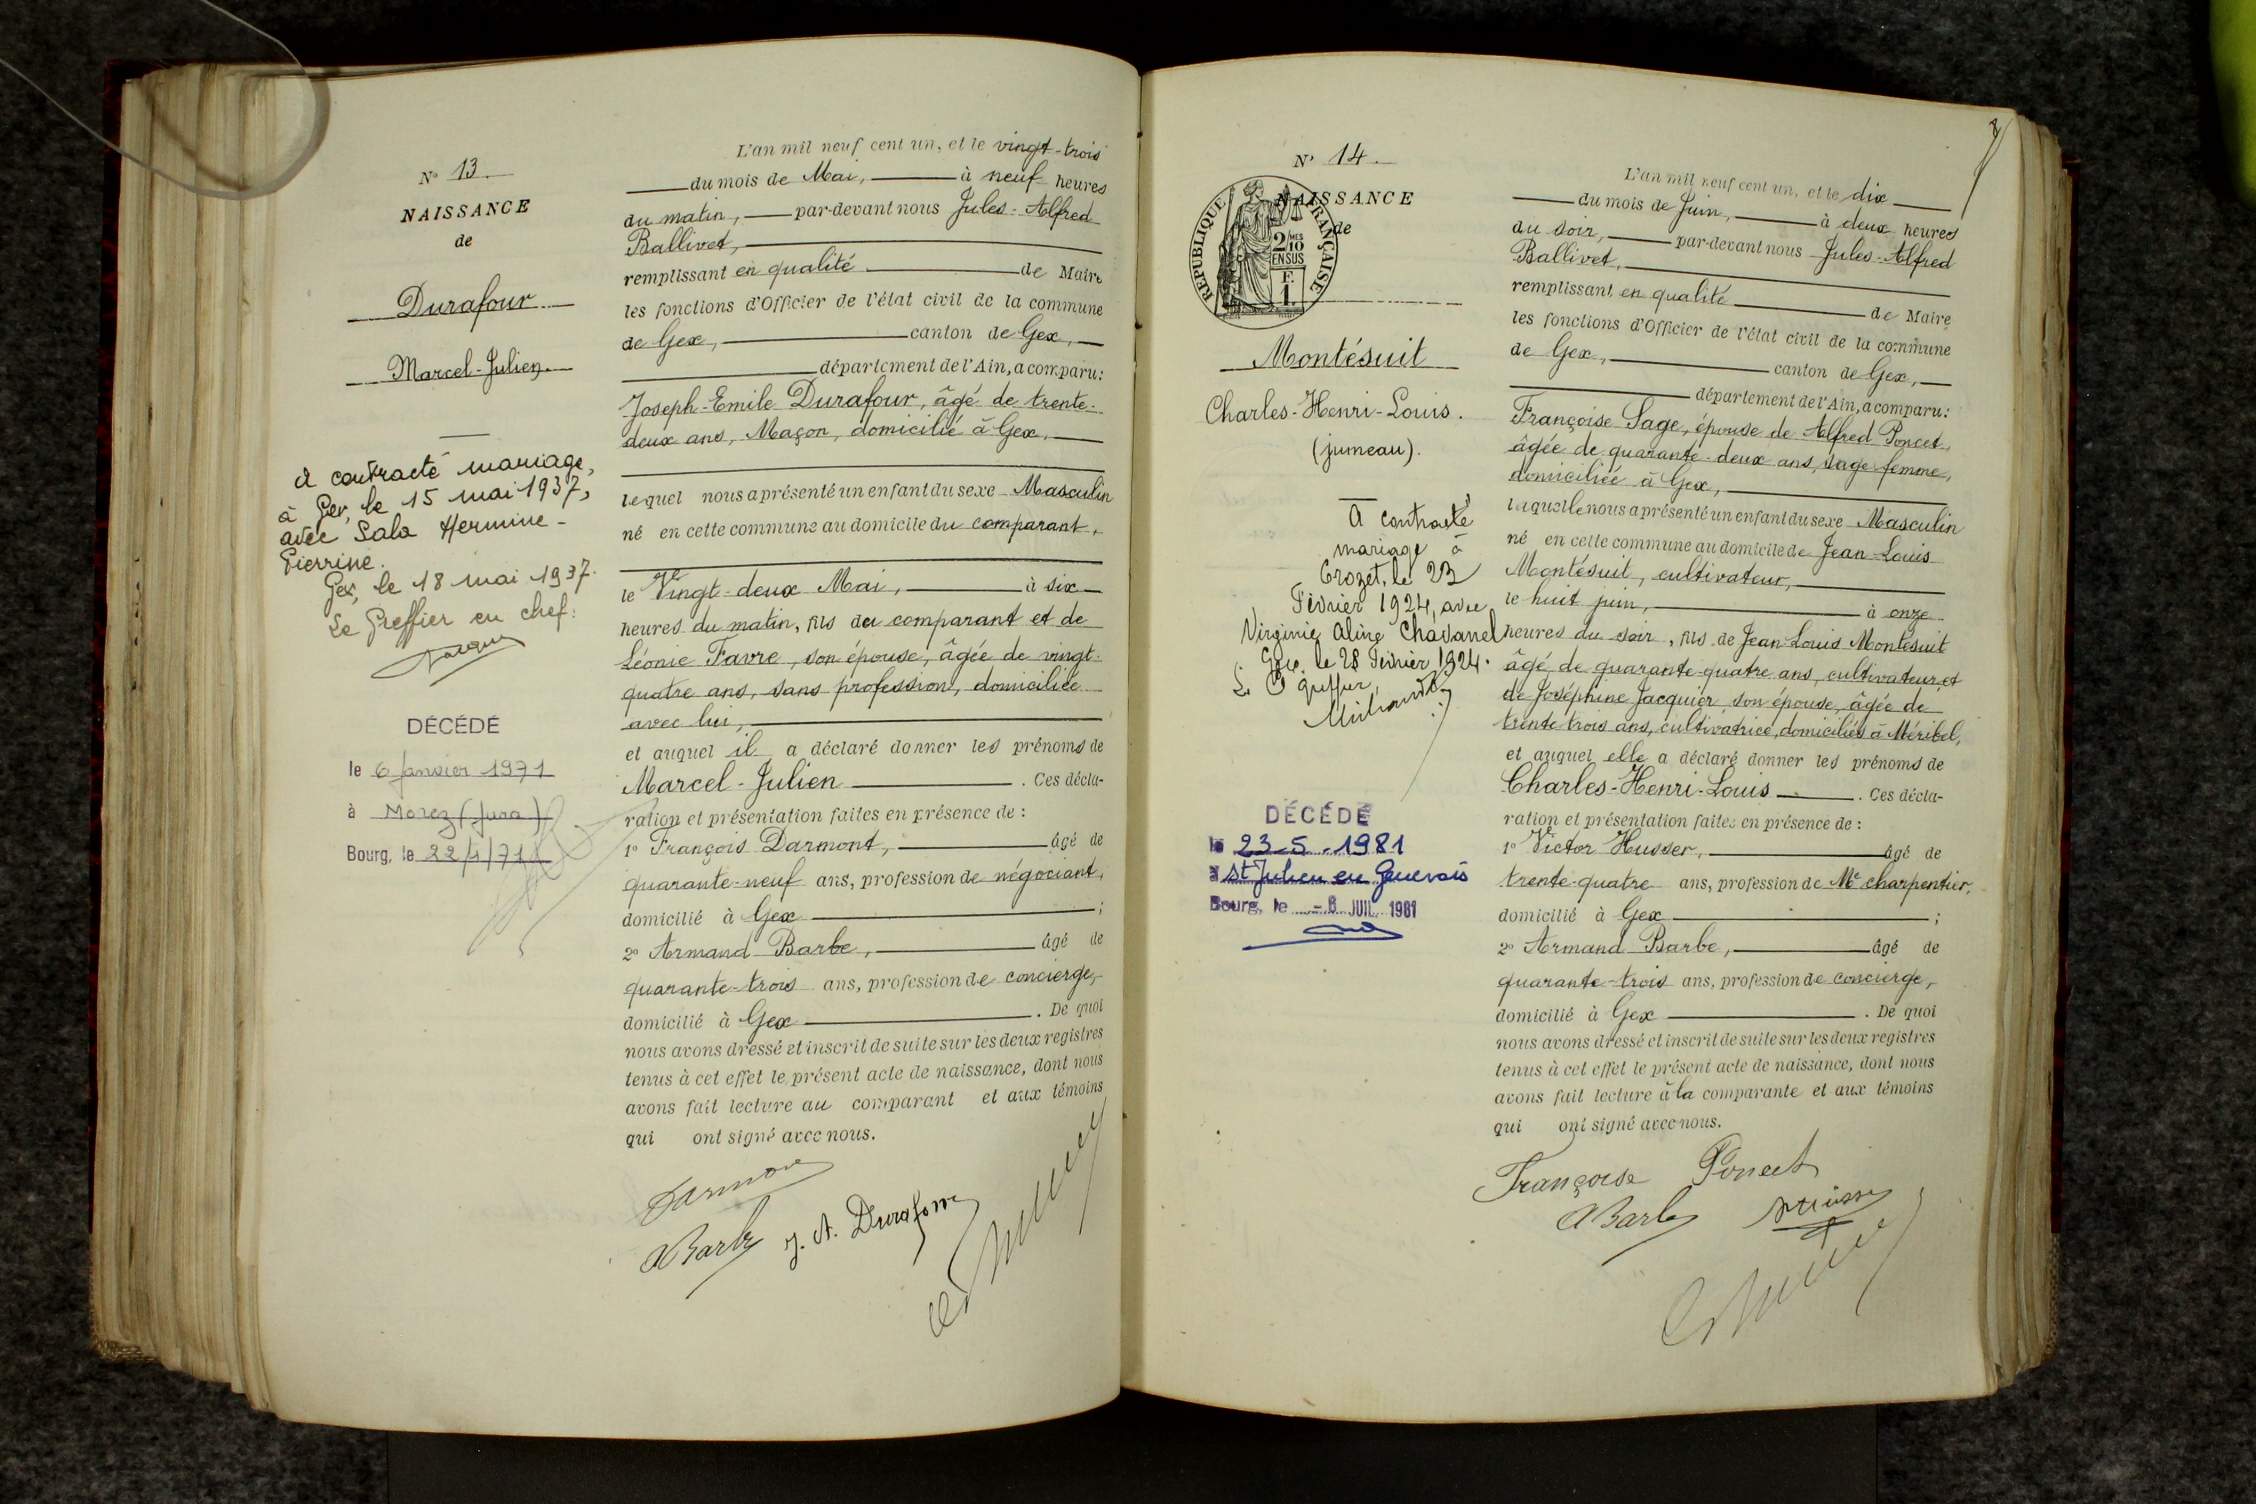 N° 13
NAISSANCE
de
Durafour
Marcel-Julien.
A contracté mariage,
à Gex, le 15 mai 1937,
avec Sala Hermine-
Pierrine.
Gex, le 18 mai 1937.
Le Greffier en chef:
DÉCÉDÉ
le 6 janvier 1971
à Morez (Jura)
Bourg, le 22/1/71
L'an mil neuf cent un, et le vingt-trois
du mois de Mai, à neuf heures
du matin, par-devant nous Jules-Alfred
Ballivet,
remplissant en qualité de Maire
les fonctions d'Officier de l'état civil de la commune
de Gex, canton de Gex,
département de l'Ain, a comparu:
Joseph-Emile Durafour, âgé de trente-
deux ans, Maçon, domicilié à Gex,
lequel nous a présenté un enfant du sexe Masculin
né en cette commune au domicile du comparant,
le Vingt-deux Mai, à six
heures du matin, fils du comparant et de
Léonie Favre, son épouse, âgée de vingt-
quatre ans, sans profession, domiciliée
avec lui,
et auquel il a déclaré donner les prénoms de
Marcel-Julien . Ces décla-
ration et présentation faites en présence de :
1° François Darmont, âgé de
quarante-neuf ans, profession de négociant,
domicilié à Gex ;
2° Armand Barbe, âgé de
quarante-trois ans, profession de concierge,
domicilié à Gex . De quoi
nous avons dressé et inscrit de suite sur les deux registres
tenus à cet effet le présent acte de naissance, dont nous
avons fait lecture au comparant et aux témoins
qui ont signé avec nous.
ABarbe J. A. Durafour
N° 14
NAISSANCE
de
RÉPUBLIQUE FRANÇAISE
2/MES
10
EN SUS
F.
1.
Montésuit
Charles-Henri-Louis.
(jumeau).
A contracté
mariage à
Crozet, le 23
Février 1924, avec
Virginie Aline Chavanel
Gex, le 28 Février 1924.
Le Greffier,
DÉCÉDÉ
le 23-5-1981
à St Julien en Genevois
Bourg, le -8 JUIL. 1981
L'an mil neuf cent un, et le dix
du mois de Juin, à deux heures
du soir, par-devant nous Jules-Alfred
Ballivet,
remplissant en qualité de Maire
les fonctions d'Officier de l'état civil de la commune
de Gex, canton de Gex,
département de l'Ain, a comparu:
Françoise Sage, épouse de Alfred Poncet,
âgée de quarante-deux ans, sage femme,
domiciliée à Gex,
laquelle nous a présenté un enfant du sexe Masculin
né en cette commune au domicile de Jean-Louis
Montésuit, cultivateur,
le huit juin, à onze
heures du soir, fils de Jean Louis Montésuit
âgé de quarante-quatre ans, cultivateur, et
de Joséphine Jacquier, son épouse, âgée de
trente trois ans, cultivatrice, domiciliés à Méribel,
et auquel elle a déclaré donner les prénoms de
Charles-Henri-Louis . Ces décla-
ration et présentation faites en présence de :
1° Victor Husser, âgé de
trente-quatre ans, profession de Me charpentier,
domicilié à Gex ;
2° Armand Barbe, âgé de
quarante-trois ans, profession de concierge,
domicilié à Gex . De quoi
nous avons dressé et inscrit de suite sur les deux registres
tenus à cet effet le présent acte de naissance, dont nous
avons fait lecture à la comparante et aux témoins
qui ont signé avec nous.
Françoise Poncet
ABarbe